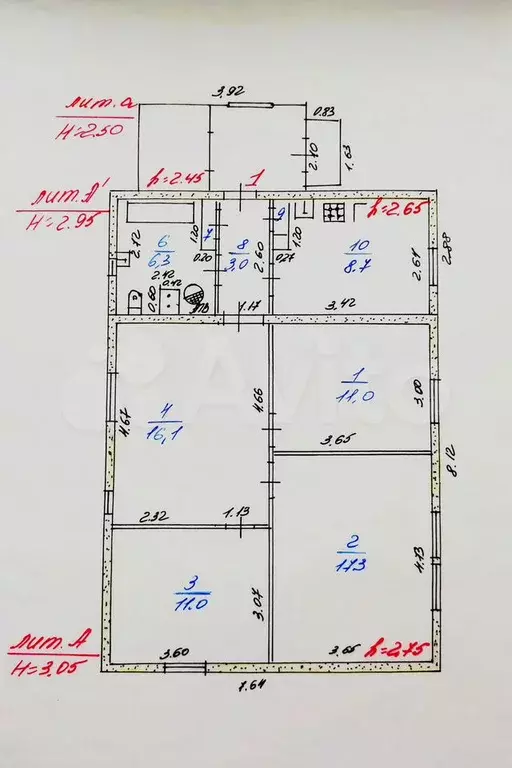 3.92
лит. а
H=2.50
0.83
2.70
1.63
h=2.45
1
лит. А'
H=2.95
h=2.65
9
7
1.20
1.20
2.72
6
6,3
8
3.0
2.60
10
8.7
2.61
2.88
0.20
0.27
2.42
0.42
0.60
1.17
3.42
4
16,1
4.67
4.66
1
11,0
3.00
3.65
8.12
2.32
1.13
2
17.3
4.73
3
11.0
3.07
лит. А
H=3.05
3.60
3.65
h=2,75
7.64
Avito